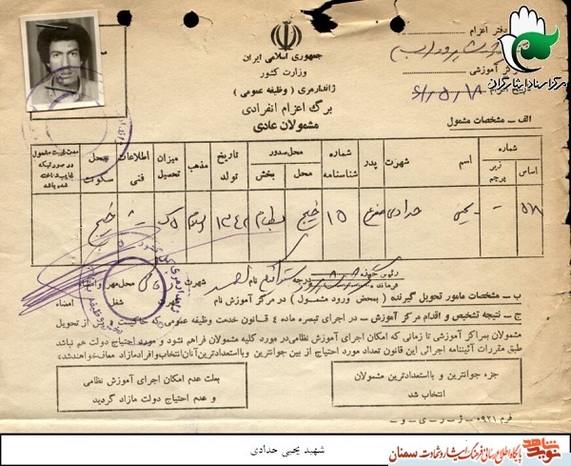 دفتر اعزام
مرکز آموزشی
تاریخ اعزام ۶۱/۵/۱۸
مرکز اسناد ایثارگران
جمهوری اسلامی ایران
وزارت کشور
ژاندارمری ( وظیفه عمومی )
برگ اعزام انفرادی
مشمولان عادی
الف ــ مشخصات مشمول
شماره
اساس
زیر پرچم
اسم
شهرت
پدر
شماره شناسنامه
محل صدور
محل
بخش
تاریخ تولد
مذهب
میزان تحصیل
اطلاعات فنی
محل سکونت
مدت غیبت مشمول
در صورتیکه
غایب شناخته
شده باشد
۵۸ – یحیی حدادی ۱۵ خیج بسطام ۱۳۴۲ اسلام خیج
ب ــ مشخصات مامور تحویل گیرنده ( بمحض ورود مشمول ) در مرکز آموزش نام شهرت شغل امضاء
ج ــ نتیجه تشخیص و اقدام مرکز آموزش ــ در اجرای تبصره ماده ۴ قانون خدمت وظیفه عمومی که حاکیست و پس از تحویل
مشمولان بمراکز آموزش تا زمانی که امکان اجرای آموزش نظامی در مورد کلیه مشمولان فراهم نشود و مورد احتیاج دولت هم نباشد
طبق مقررات آئیننامه اجرائی این قانون تعداد مورد احتیاج از بین جوانترین و بااستعدادترین آنان انتخاب و افراد مازاد معاف خواهند شد)
جزء جوانترین و بااستعدادترین مشمولان
انتخاب شد
بعلت عدم امکان اجرای آموزش نظامی
و عدم احتیاج دولت مازاد گردید
فرم ۰۹۲۱ ــ ژ ــ ر ــ ی ــ و
شهید یحیی حدادی
نوید شاهد
پایگاه اطلاع رسانی فرهنگ ایثار و شهادت سمنان